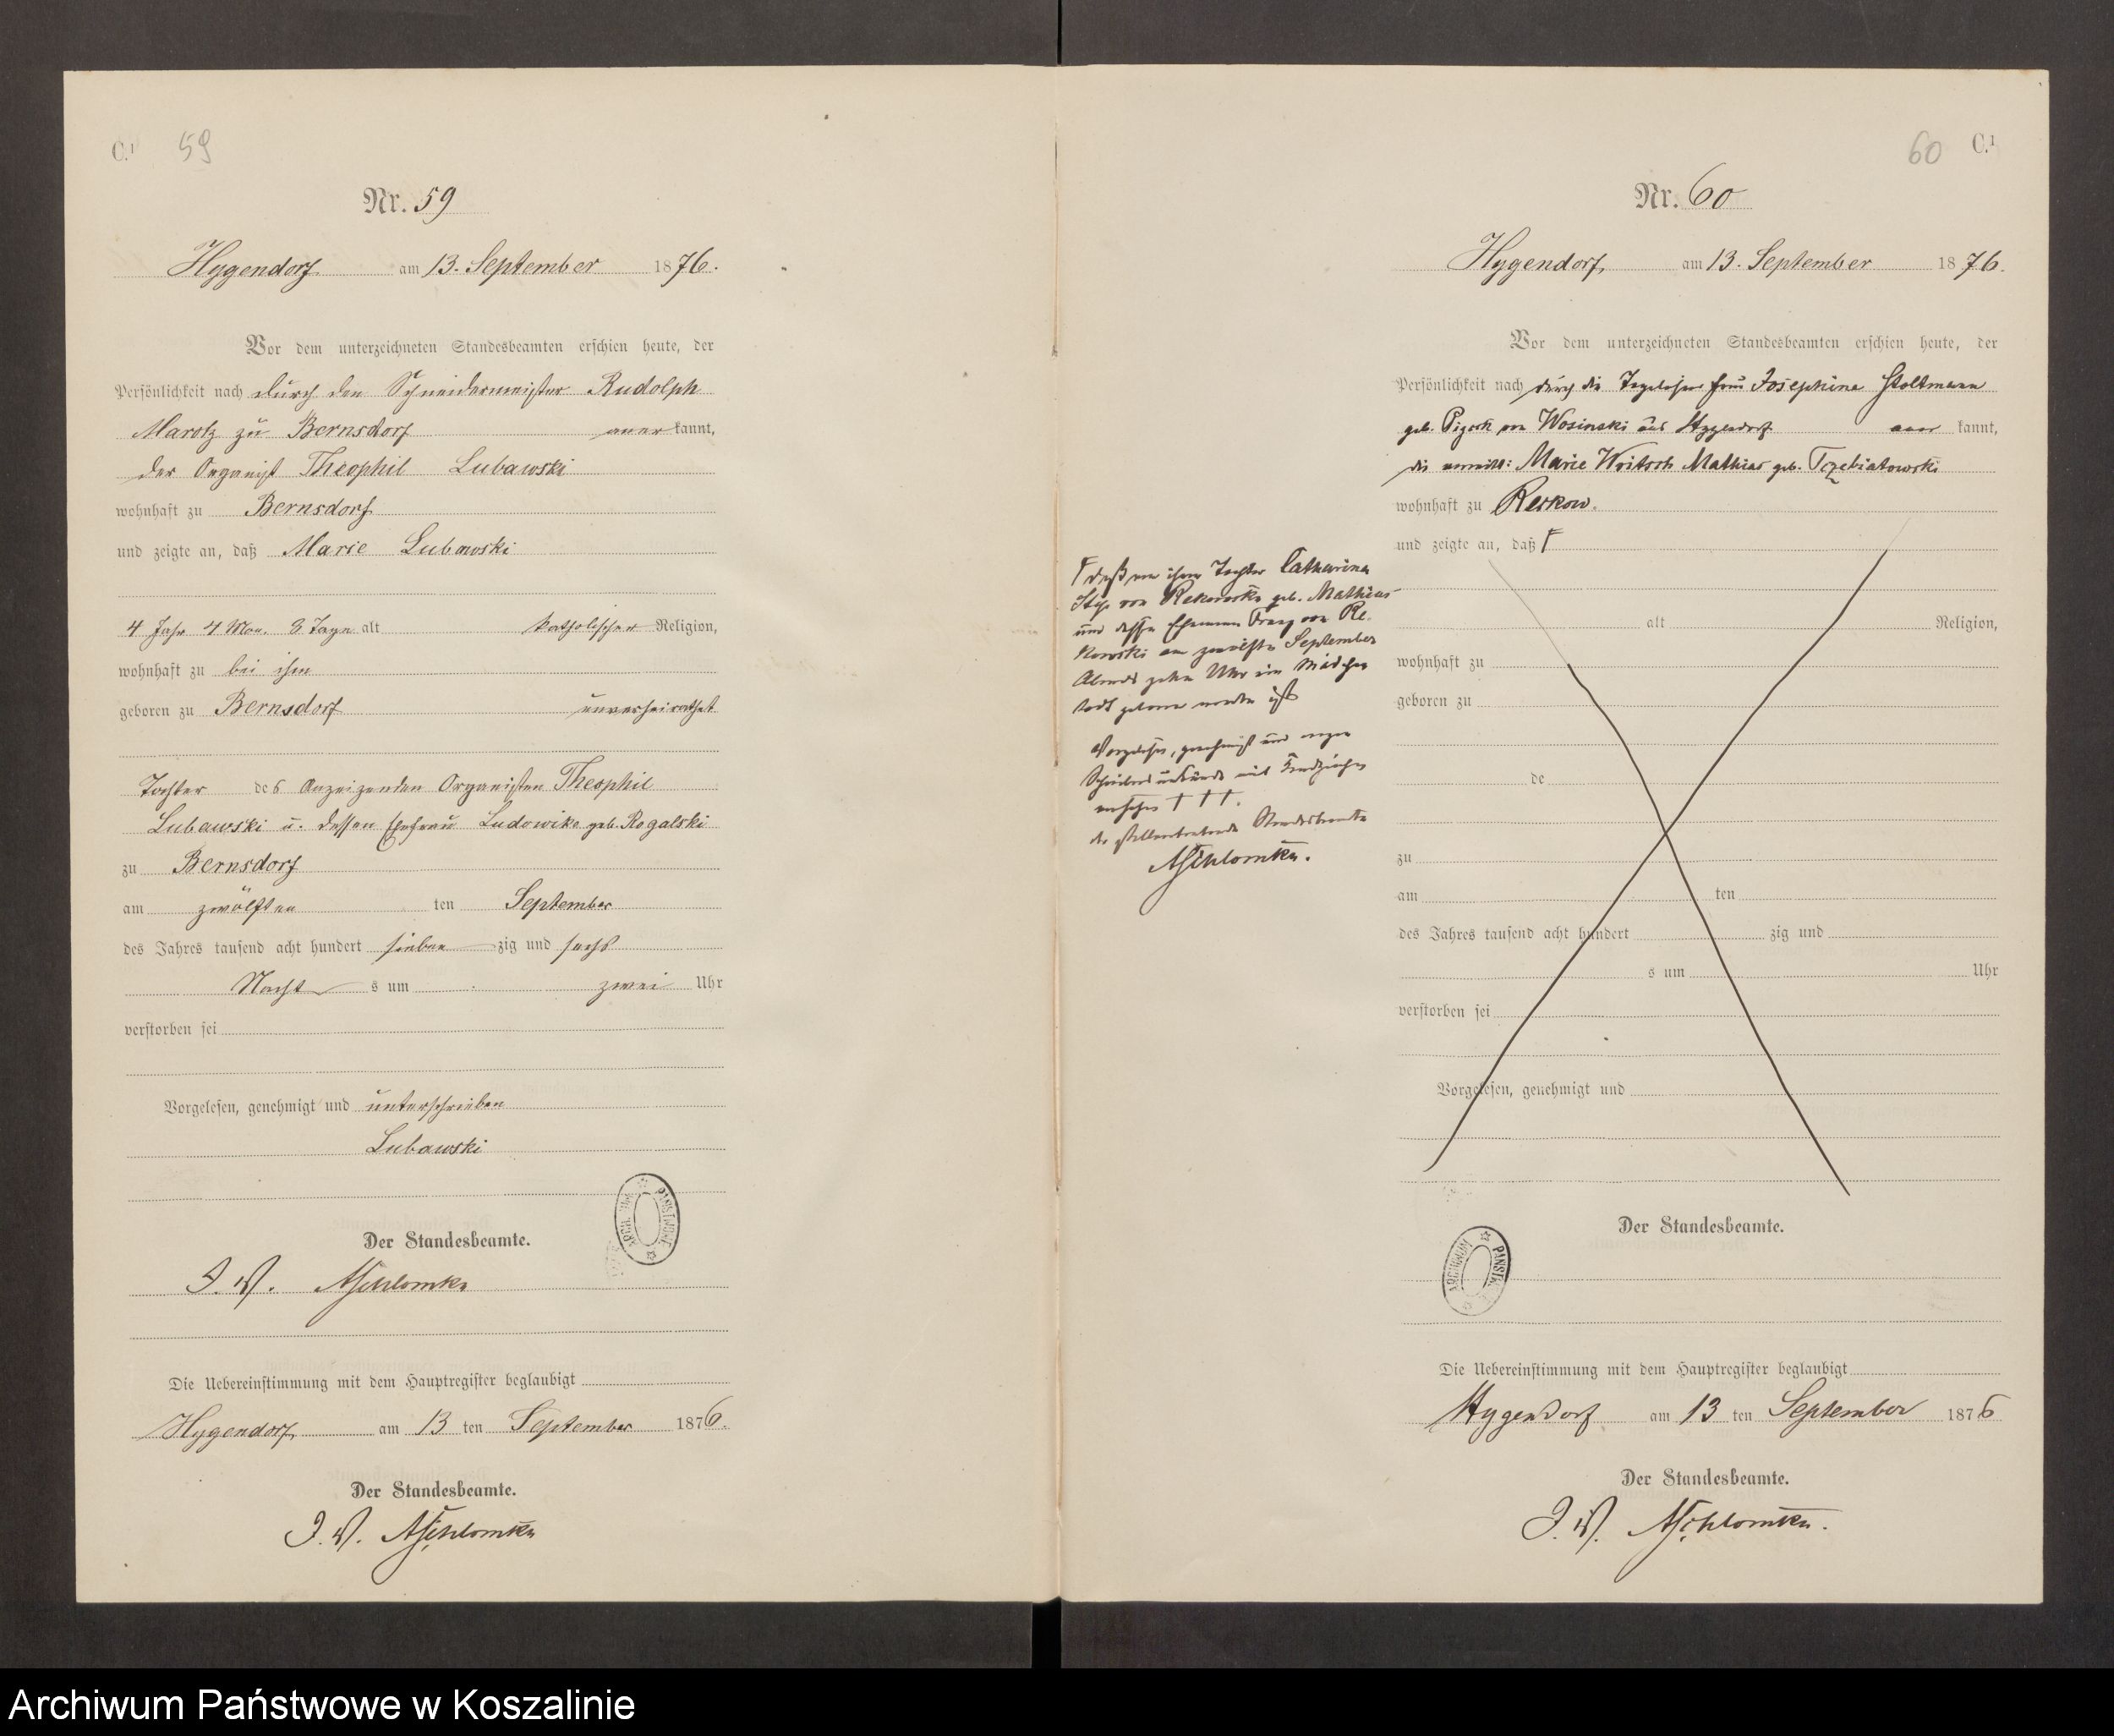 C.¹ 59
Nr. 59
Hygendorf am 13. September 1876.
Vor dem unterzeichneten Standesbeamten erschien heute, der
Persönlichkeit nach durch den Schneidermeister Rudolph
Marotz zu Bernsdorf anerkannt,
der Organist Theophil Lubawski
wohnhaft zu Bernsdorf
und zeigte an, daß Marie Lubawski
4 Jahr 4 Mon. 8 Tage alt katholischer Religion,
wohnhaft zu bei ihm
geboren zu Bernsdorf unverheirathet
Tochter des Anzeigenden Organisten Theophil
Lubawski u. dessen Ehefrau Ludowika geb. Rogalski
zu Bernsdorf
am zwölften ten September
des Jahres tausend acht hundert sieben zig und sechs
Nacht s um zwei Uhr
verstorben sei
Vorgelesen, genehmigt und unterschrieben
Lubawski
Der Standesbeamte.
I. V. ASchlomka
Die Uebereinstimmung mit dem Hauptregister beglaubigt
Hygendorf am 13 ten September 1876.
Der Standesbeamte.
I. V. ASchlomka
60 C.¹
Nr. 60
Hygendorf, am 13. September 1876.
Vor dem unterzeichneten Standesbeamten erschien heute, der
Persönlichkeit nach durch die Frau Josephine Stoltmann
geb. von Wosinski aus Hygendorf kannt,
die Marie Mathias geb.
wohnhaft zu Reckow.
und zeigte an, daß Γ
alt Religion,
wohnhaft zu
geboren zu
de
zu
am ten
des Jahres tausend acht hundert zig und
s um Uhr
verstorben sei
Vorgelesen, genehmigt und
Γ daß von ihrer Tochter Catharina
von Rekowski geb. Mathias
und dessen Ehemann Franz von Re-
kowski am zwölften September
Abends zehn Uhr ein Mädchen
todt geboren worden ist
Vorgelesen, genehmigt und wegen
Schreibensunkunde mit Handzeichen
versehen † † †.
der stellvertretende Standesbeamte
ASchlomka.
Der Standesbeamte.
Die Uebereinstimmung mit dem Hauptregister beglaubigt
Hygendorf am 13 ten September 1876
Der Standesbeamte.
I. V. ASchlomka.
Archiwum Państwowe w Koszalinie